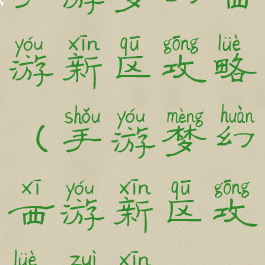 yóu xīn qū gōng lüè
游新区攻略
shǒu yóu mèng huàn
（手游梦幻
xī yóu xīn qū gōng
西游新区攻
lüè zuì xīn